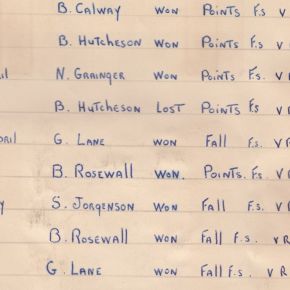 B. Calway won Points F.s V
B. Hutcheson won Points F.s V
il N. Grainger won Points F.s. V R
B. Hutcheson Lost Points Fs V R
pril G. Lane won Fall F.s. V R
B. Rosewall won. Points. Fs. V R
y S. Jorgenson won Fall F.s. V R
B. Rosewall won Fall F.s. V R
G. Lane won Fall F.s. V R